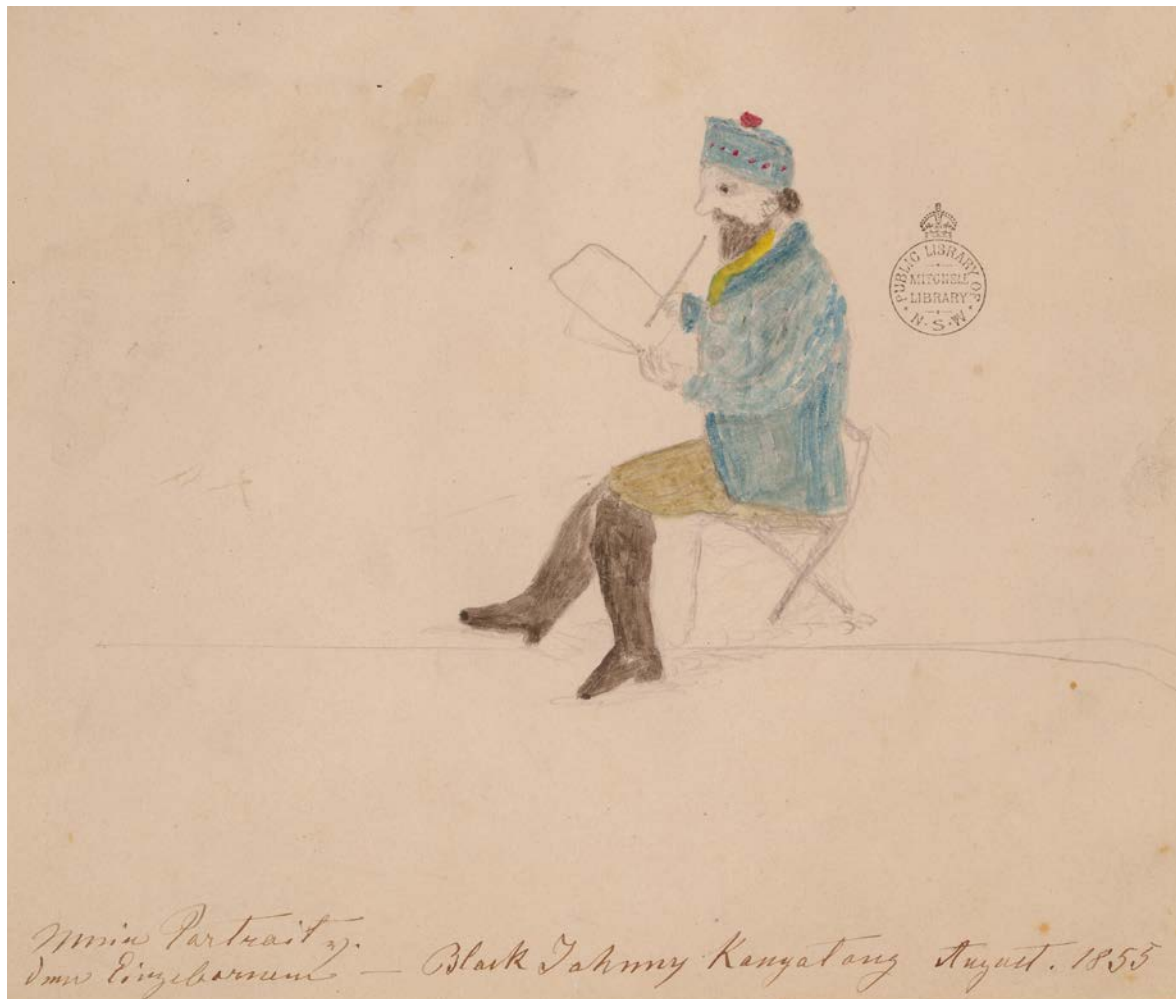 PUBLIC LIBRARY OF
MITCHELL
LIBRARY
N·S·W
Mein Portrait v.
dem Eingebornen — Black Johnny Kangatong August. 1855